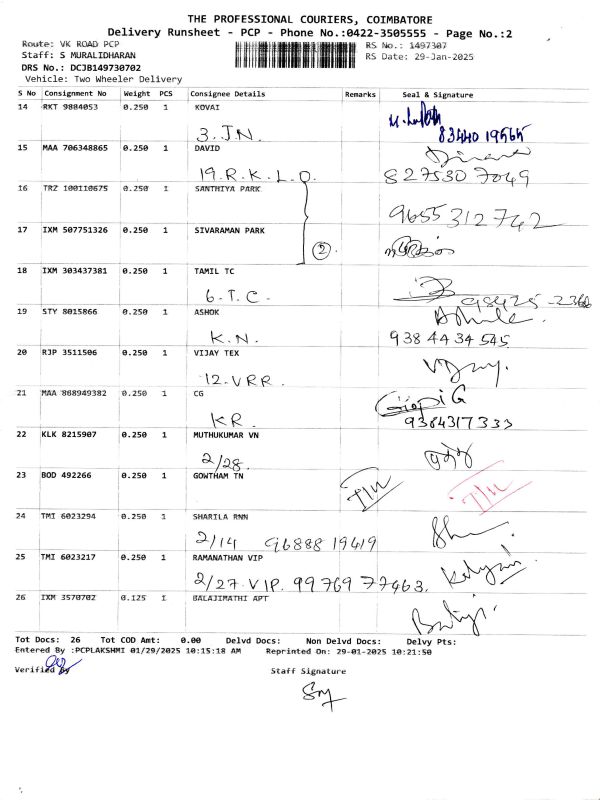 THE PROFESSIONAL COURIERS, COIMBATORE
Delivery Runsheet - PCP - Phone No.:0422-3505555 - Page No.:2
Route: VK ROAD PCP
RS No.: 1497307
Staff: S MURALIDHARAN
RS Date: 29-Jan-2025
DRS No.: DCJB149730702
Vehicle: Two Wheeler Delivery
S No Consignment No Weight PCS Consignee Details Remarks Seal & Signature
14 RKT 9884053 0.250 1 KOVAI
3. JN. 83440 19565
15 MAA 706348865 0.250 1 DAVID
19. R. K. L. O. 827530 7049
16 TRZ 100110675 0.250 1 SANTHIYA PARK
9655 312742
17 IXM 507751326 0.250 1 SIVARAMAN PARK
2
18 IXM 303437381 0.250 1 TAMIL TC
6. T. C. 98425-2366
19 STY 8015866 0.250 1 ASHOK
K. N. 938 4434 545
20 RJP 3511506 0.250 1 VIJAY TEX
12. VRR.
21 MAA 868949382 0.250 1 CG
Gopi G
KR. 9384317333
22 KLK 8215907 0.250 1 MUTHUKUMAR VN
2/28.
23 BOD 492266 0.250 1 GOWTHAM TN
24 TMI 6023294 0.250 1 SHARILA RNN
2/14 96888 19419
25 TMI 6023217 0.250 1 RAMANATHAN VIP
2/27. VIP. 99769 77463. Kalyani
26 IXM 3570702 0.125 1 BALAJIMATHI APT
Balaji.
Tot Docs: 26 Tot COD Amt: 0.00 Delvd Docs: Non Delvd Docs: Delvy Pts:
Entered By :PCPLAKSHMI 01/29/2025 10:15:18 AM Reprinted On: 29-01-2025 10:21:50
Verified By
Staff Signature